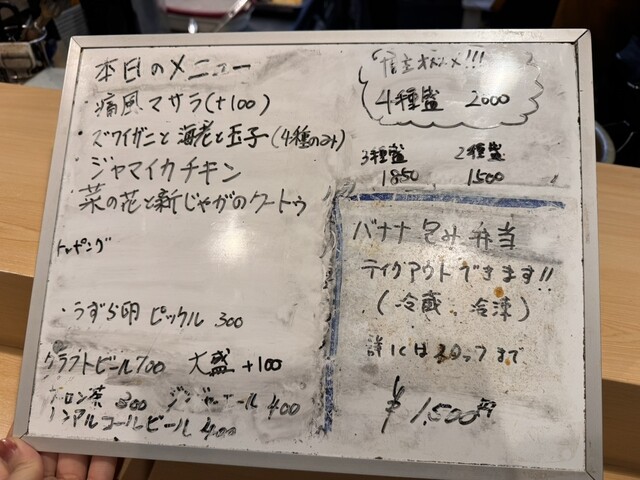 本日のメニュー
・痛風マサラ(+100)
・ズワイガニと海老と玉子(4種のみ)
・ジャマイカチキン
・菜の花と新じゃがのクートゥ
トッピング
・うずら卵ピックル 300
クラフトビール700 大盛+100
ウーロン茶 300 ジンジャーエール 400
ノンアルコールビール 400
店主オススメ!!!
4種盛 2000
3種盛 2種盛
1850 1500
バナナ包み弁当
テイクアウトできます!!
(冷蔵、冷凍)
詳しくはスタッフまで
¥1,500円